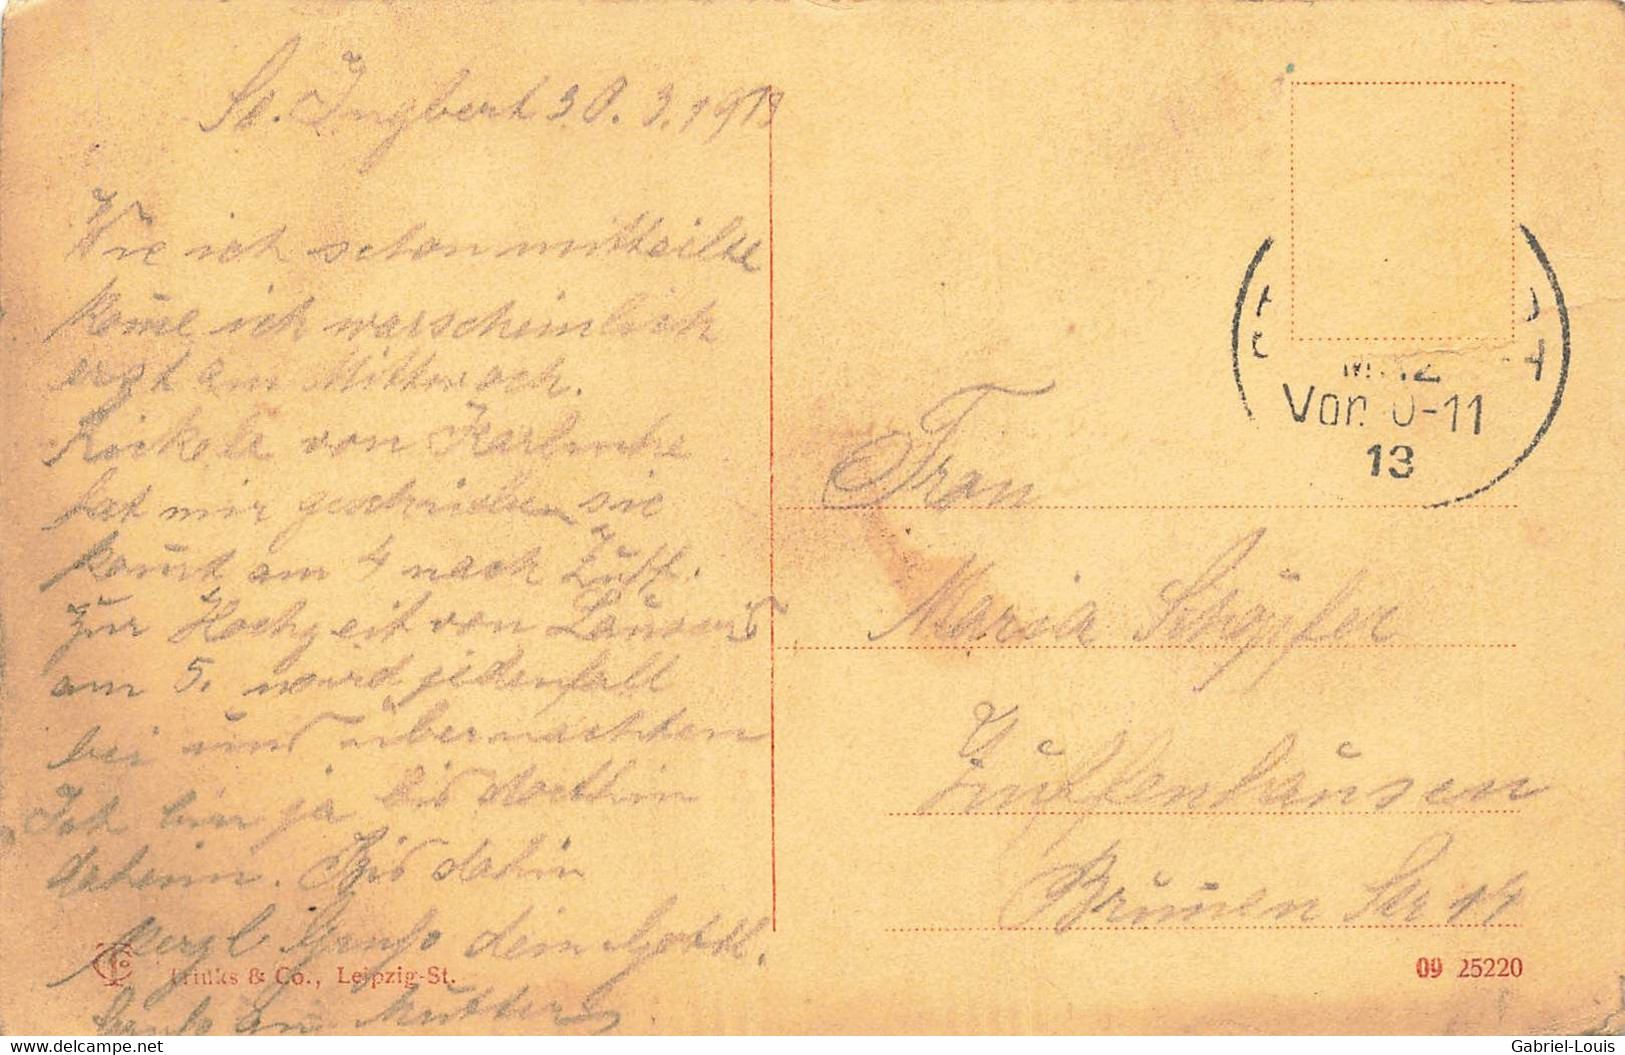 St. Ingbert 30.3.1913
Wie ich schon mitteilte
kom̄e ich warscheinlich
erst am Mittwoch.
Rickele von Karlsruhe
hat mir geschrieben sie
kom̄t am 4 nach Zuff.
zur Hochzeit von
am 5. wird jedenfall
bei uns übernachten
Ich bin ja bis dorthin
daheim. Bis dahin
herzl Gruß dein Gottl.
Gruß an Mutter
Trinks & Co., Leipzig-St.
Vor. 0-11
13
Frau
Maria Schöpfer
Zuffenhausen
Brun̄en Str 14
09 25220
www.delcampe.net
Gabriel-Louis